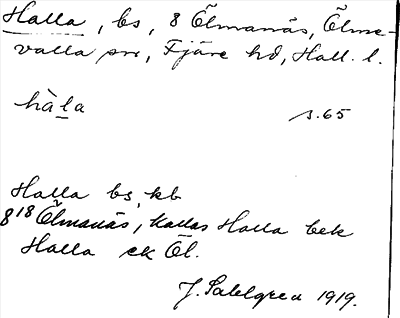 Halla, bs, 8 Ölmanäs, Ölme-
valla sn, Fjäre hd, Hall. l.
hàla s. 65
Halla bs, kb
8¹⁸ Ölmanäs, kallas Halla bek
Halla ek Öl.
J. Sahlgren 1919.